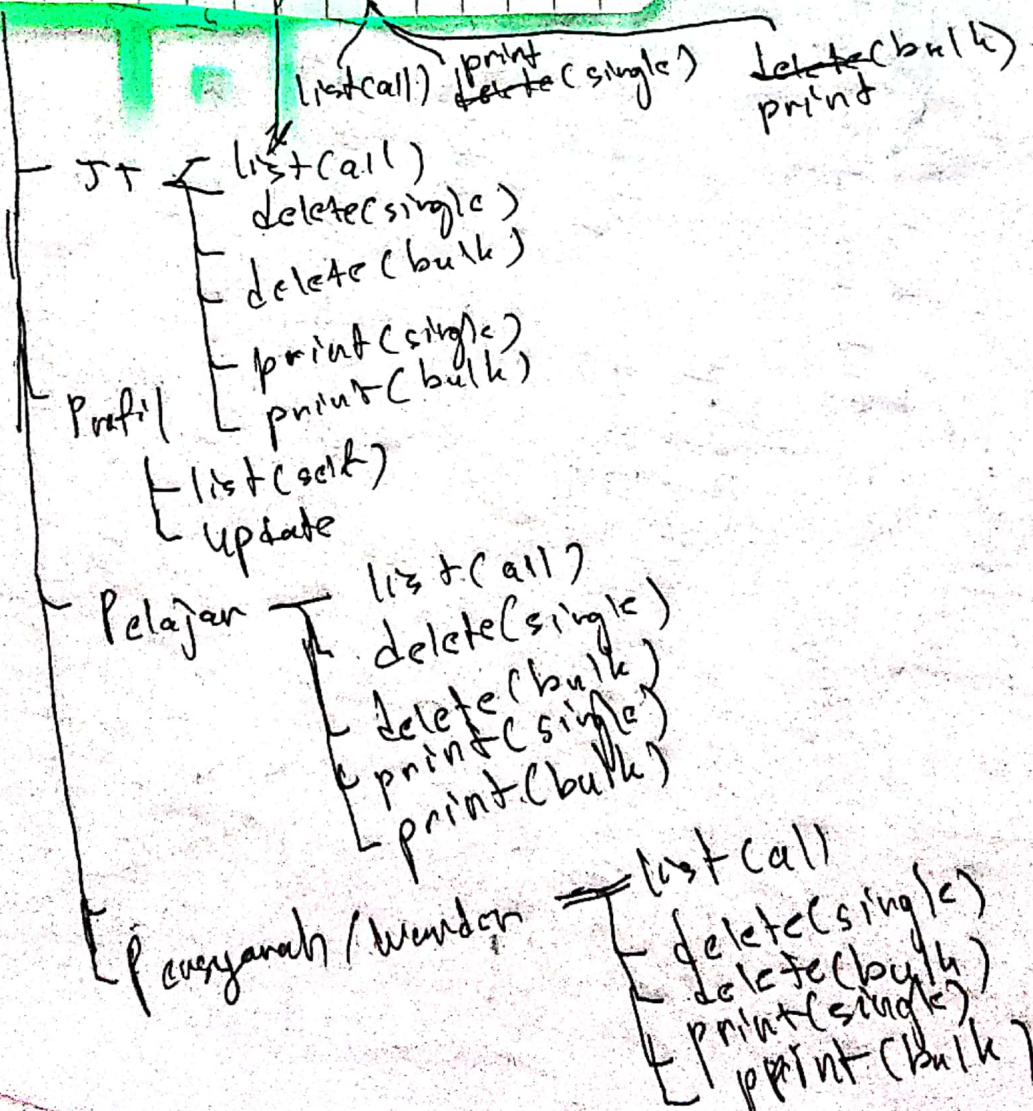 list(all) print delete(single) delete(bulk)
print
JT list(all)
delete(single)
delete(bulk)
print(single)
print(bulk)
Profil
list(self)
update
Pelajar list(all)
delete(single)
delete(bulk)
print(single)
print(bulk)
Pensyarah / Warden list(all)
delete(single)
delete(bulk)
print(single)
print(bulk)